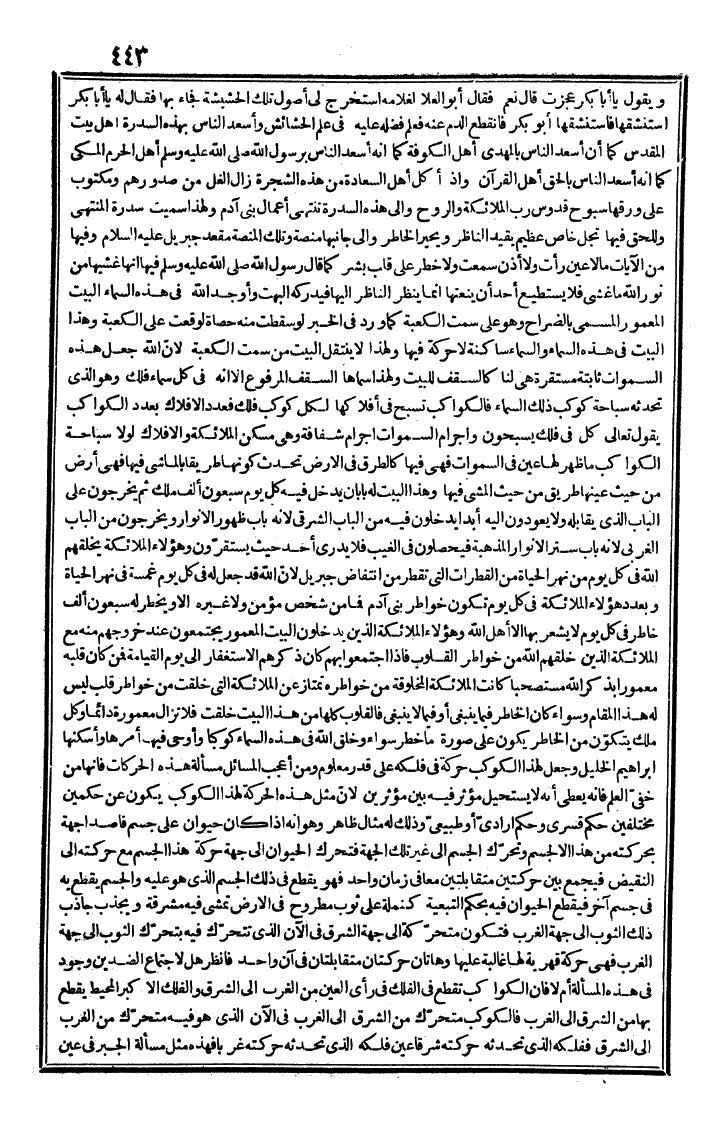 ٤٤٣
و يقول يا أبا بكر عجزت قال نعم فقال أبو العلا لغلامه استخرج لى أصول تلك الحشيشة فجاء بها فقال له يا أبا بكر
استنشقها فاستنشقها أبو بكر فانقطع الدم عنه فعلم فضله عليه فى علم الحشائش وأسعد الناس بهذه السدرة اهل بيت
المقدس كما أن أسعد الناس بالمهدى أهل الكوفة كما انه أسعد الناس برسول الله صلى الله عليه وسلم أهل الحرم المكى
كما انه أسعد الناس بالحق أهل القرآن واذ أكل أهل السعادة من هذه الشجرة زال الغل من صدورهم ومكتوب
على ورقها سبوح قدوس رب الملائكة والروح والى هذه السدرة تنتهى أعمال بنى آدم ولهذا سميت سدرة المنتهى
وللحق فيها تجل خاص عظيم يقيد الناظر ويحير الخاطر والى جانبها منصة وتلك المنصة مقعد جبريل عليه السلام وفيها
من الآيات مالا عين رأت ولا أذن سمعت ولا خطر على قلب بشر كما قال رسول الله صلى الله عليه وسلم فيها انها غشيها من
نور الله ما غشى فلا يستطيع أحد أن ينعتها انما ينظر الناظر اليها فيدركه البهت وأوجد الله فى هذه السماء البيت
المعمور المسمى بالضراح وهو على سمت الكعبة كما ورد فى الخبر لو سقطت منه حصاة لوقعت على الكعبة وهذا
البيت فى هذه السماء والسماء ساكنة لا حركة فيها ولهذا لا ينتقل البيت من سمت الكعبة لان الله جعل هذه
السموات ثابتة مستقرة هى لنا كالسقف للبيت ولهذا سماها السقف المرفوع الا انه فى كل سماء فلك وهو الذى
تحدثه سباحة كوكب ذلك السماء فالكواكب تسبح فى أفلاكها لكل كوكب فلك فعدد الافلاك بعدد الكواكب
يقول تعالى كل فى فلك يسبحون واجرام السموات اجرام شفافة وهى مسكن الملائكة والافلاك لولا سباحة
الكواكب ما ظهر لها عين فى السموات فهى فيها كالطرق فى الارض تحدث كونها طريقا بالماشى فيها فهى أرض
من حيث عينها طريق من حيث المشى فيها وهذا البيت له بابان يدخل فيه كل يوم سبعون ألف ملك ثم يخرجون على
الباب الذى يقابله ولا يعودون اليه أبدا يدخلون فيه من الباب الشرقى لانه باب ظهور الانوار ويخرجون من الباب
الغربى لانه باب ستر الانوار المذهبة فيحصلون فى الغيب فلا يدرى أحد حيث يستقرّون وهؤلاء الملائكة يخلقهم
الله فى كل يوم من نهر الحياة من القطرات التى تقطر من انتفاض جبريل لانّ الله قد جعل له فى كل يوم غمسة فى نهر الحياة
و بعدد هؤلاء الملائكة فى كل يوم تكون خواطر بنى آدم فما من شخص مؤمن ولا غيره الا و يخطر له سبعون ألف
خاطر فى كل يوم لا يشعر بها الا أهل الله وهؤلاء الملائكة الذين يدخلون البيت المعمور يجتمعون عند خروجهم منه مع
الملائكة الذين خلقهم الله من خواطر القلوب فاذا اجتمعوا بهم كان ذكرهم الاستغفار الى يوم القيامة فمن كان قلبه
معمورا بذكر الله مستصحبا كانت الملائكة المخلوقة من خواطره تمتاز عن الملائكة التى خلقت من خواطر قلب ليس
له هذا المقام وسواء كان الخاطر فيما ينبغى أو فيما لا ينبغى فالقلوب كلها من هذا البيت خلقت فلا تزال معمورة دائما وكل
ملك يتكوّن من الخاطر يكون على صورة ما خطر سواء وخلق الله فى هذه السماء كوكبا وأوحى فيها أمرها وأسكنها
ابراهيم الخليل وجعل لهذا الكوكب حركة فى فلكه على قدر معلوم ومن أعجب المسائل مسألة هذه الحركات فانها من
خفىّ العلم فانه يعطى أنه لا يستحيل مؤثر فيه بين مؤثرين لانّ مثل هذه الحركة لهذا الكوكب يكون عن حكمين
مختلفين حكم قسرى وحكم ارادىّ أو طبيعىّ وذلك له مثال ظاهر وهو انه اذا كان حيوان على جسم قاصدا جهة
بحركته من هذا الاجسم وتحرّك الجسم الى غير تلك الجهة فتحرك الحيوان الى جهة حركة هذا الجسم مع حركته الى
النقيض فيجمع بين حركتين متقابلتين معا فى زمان واحد فهو يقطع فى ذلك الجسم الذى هو عليه والجسم يقطع به
فى جسم آخر فيقطع الحيوان فيه بحكم التبعية كنملة على ثوب مطروح فى الارض تمشى فيه مشرقة ويجذب جاذب
ذلك الثوب الى جهة الغرب فتكون متحرّكة الى جهة الشرق فى الآن الذى تتحرّك فيه بتحرّك الثوب الى جهة
الغرب فهى حركة قهرية لها غالبة عليها وهاتان حركتان متقابلتان فى آن واحد فانظر هل لاجتماع الضدين وجود
فى هذه المسألة أم لا فان الكواكب تقطع فى الفلك فى رأى العين من الغرب الى الشرق والفلك الاكبر المحيط يقطع
بها من الشرق الى الغرب فالكوكب متحرّك من الشرق الى الغرب فى الآن الذى هو فيه متحرّك من الغرب
الى الشرق ففلكه الذى تحدثه حركته شرقا عين فلكه الذى تحدثه حركته غربا فهذه مثل مسألة الجبر فى عين